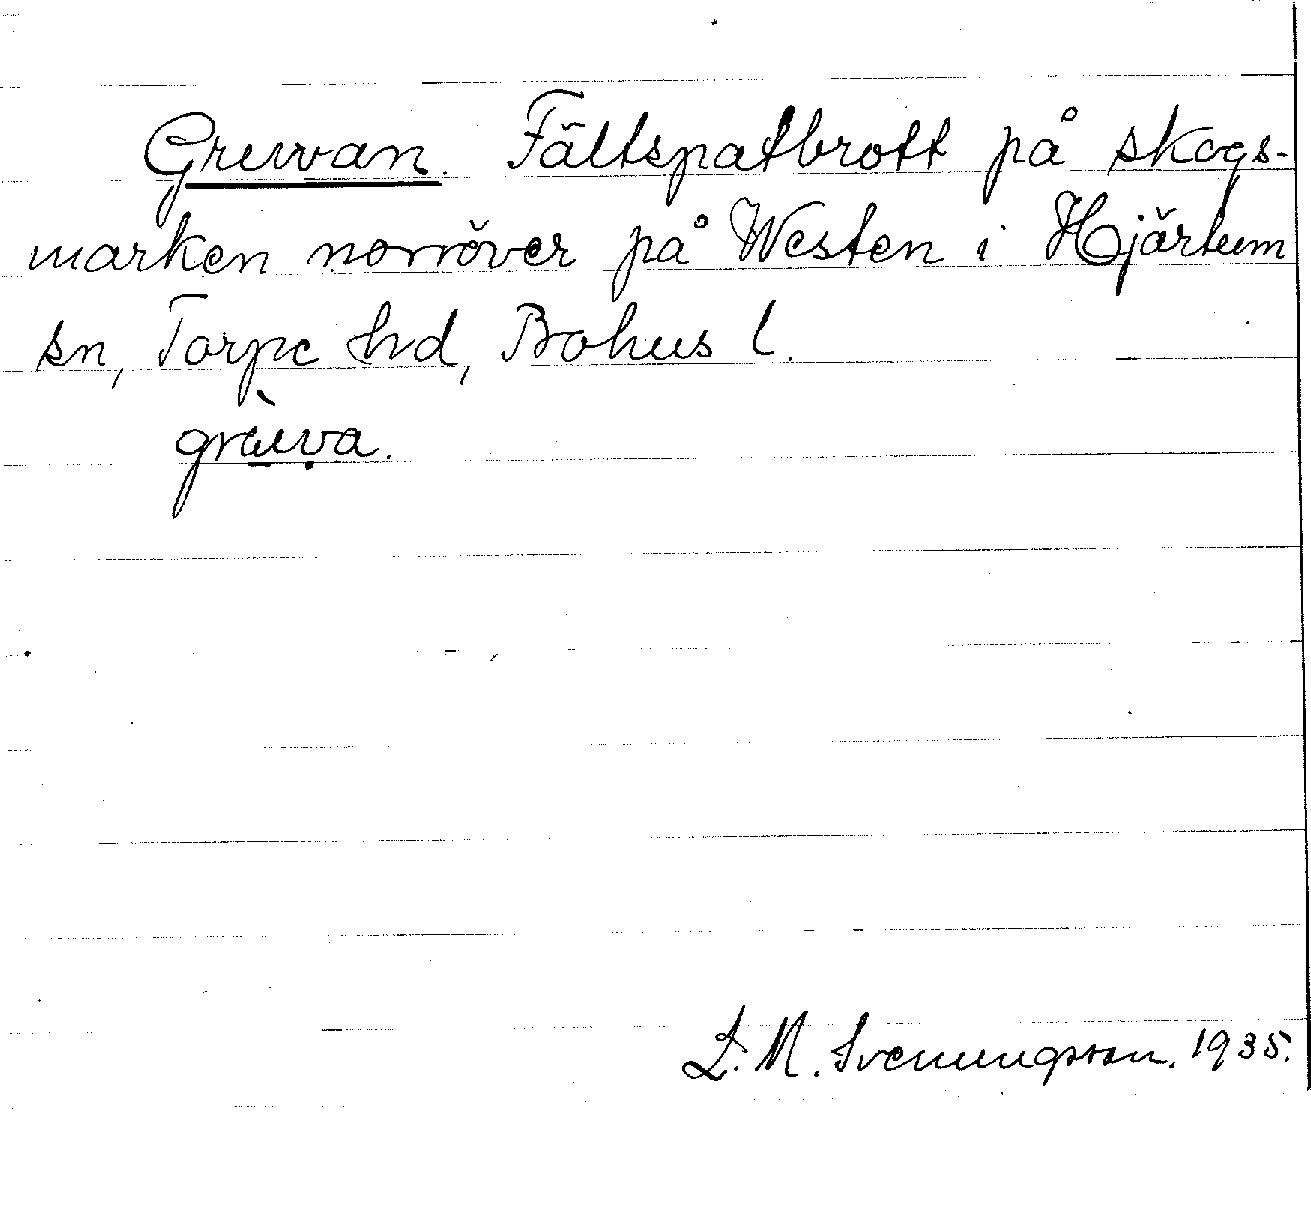 Gruvan. Fältspatbrott på skogs-
marken norröver på Westen i Hjärtum
sn, Torpe hd, Bohus l.
gràuva.
L. M. Svenungsson. 1935.